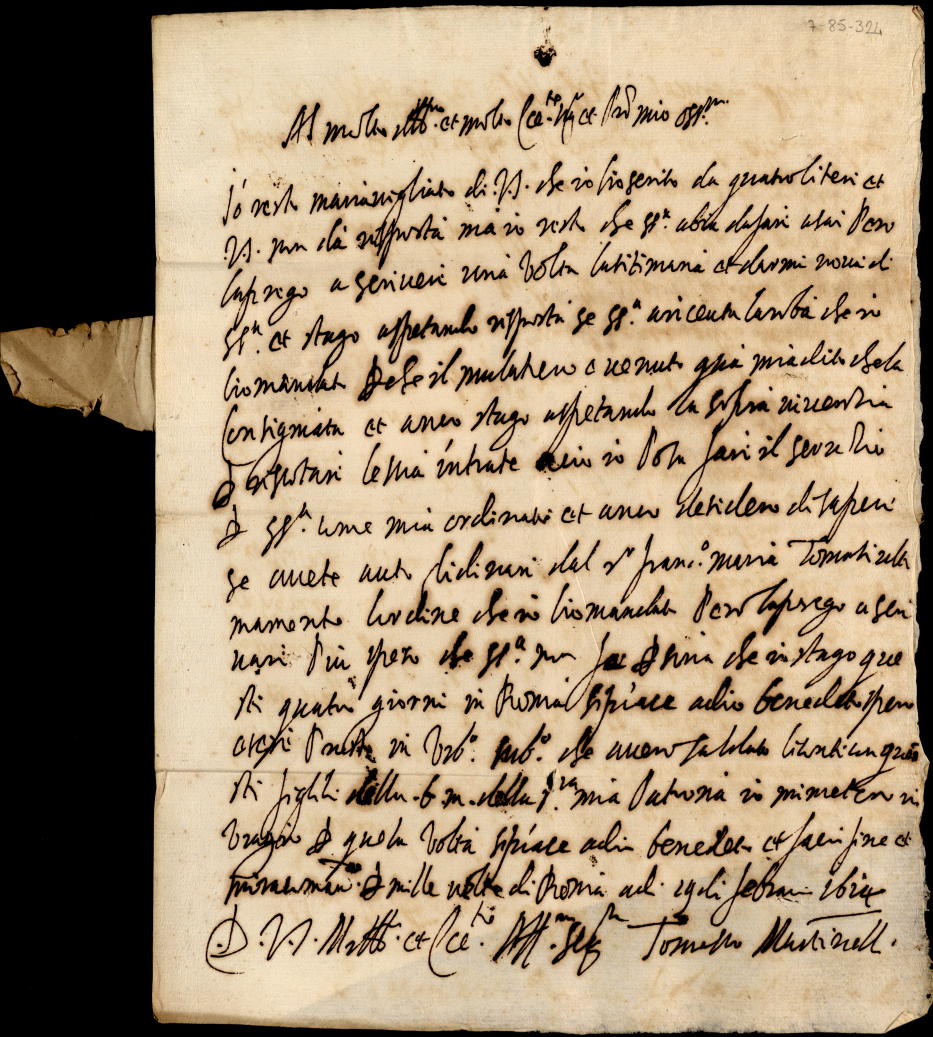 7-85-324
Al molto Ill.re et molto Ecc.te Sig.r et Pro.n mio oss.mo
Io resto maravigliato di V.S. che io ho scrito da quatro litere et
V.S. non dà risposta ma io resto che SS.a abia da fari asai Pero
la prego a scriveri una volta la setimana et darmi nova di
SS.a et stago aspetando risposta se SS.a a ricevuta la roba che io
ho mandato Perche il mulatiero e venuto qua mi a dito che la
Consigniata et anco stago aspetando la
P riscotari le mia intrate acio io Posa fari il servitio
P SS.a come mia ordinato et anco desidero di saperi
se avete auto li dinari dal S.r Franc.o maria Tomasi
mamente lordine che io ho mandato Pero la prego a scri
vari Piu spero che SS.a non che io stago que
sti quatro giorni in Roma si piace a dio benedeto spero
eseri Presto in Urb.o sub.o che avero saldato li conti con que
sti figlioli della b.m. della S.ra mia Patrona io mi meterò in
viagio P quela volta si piace a dio benedeto et facio fine et
P mille volte di Roma adi 19 di febraio
D.V.S. M.Ill.re et Ecc.te Aff.mo Ser.re Tomasso Martinelli.